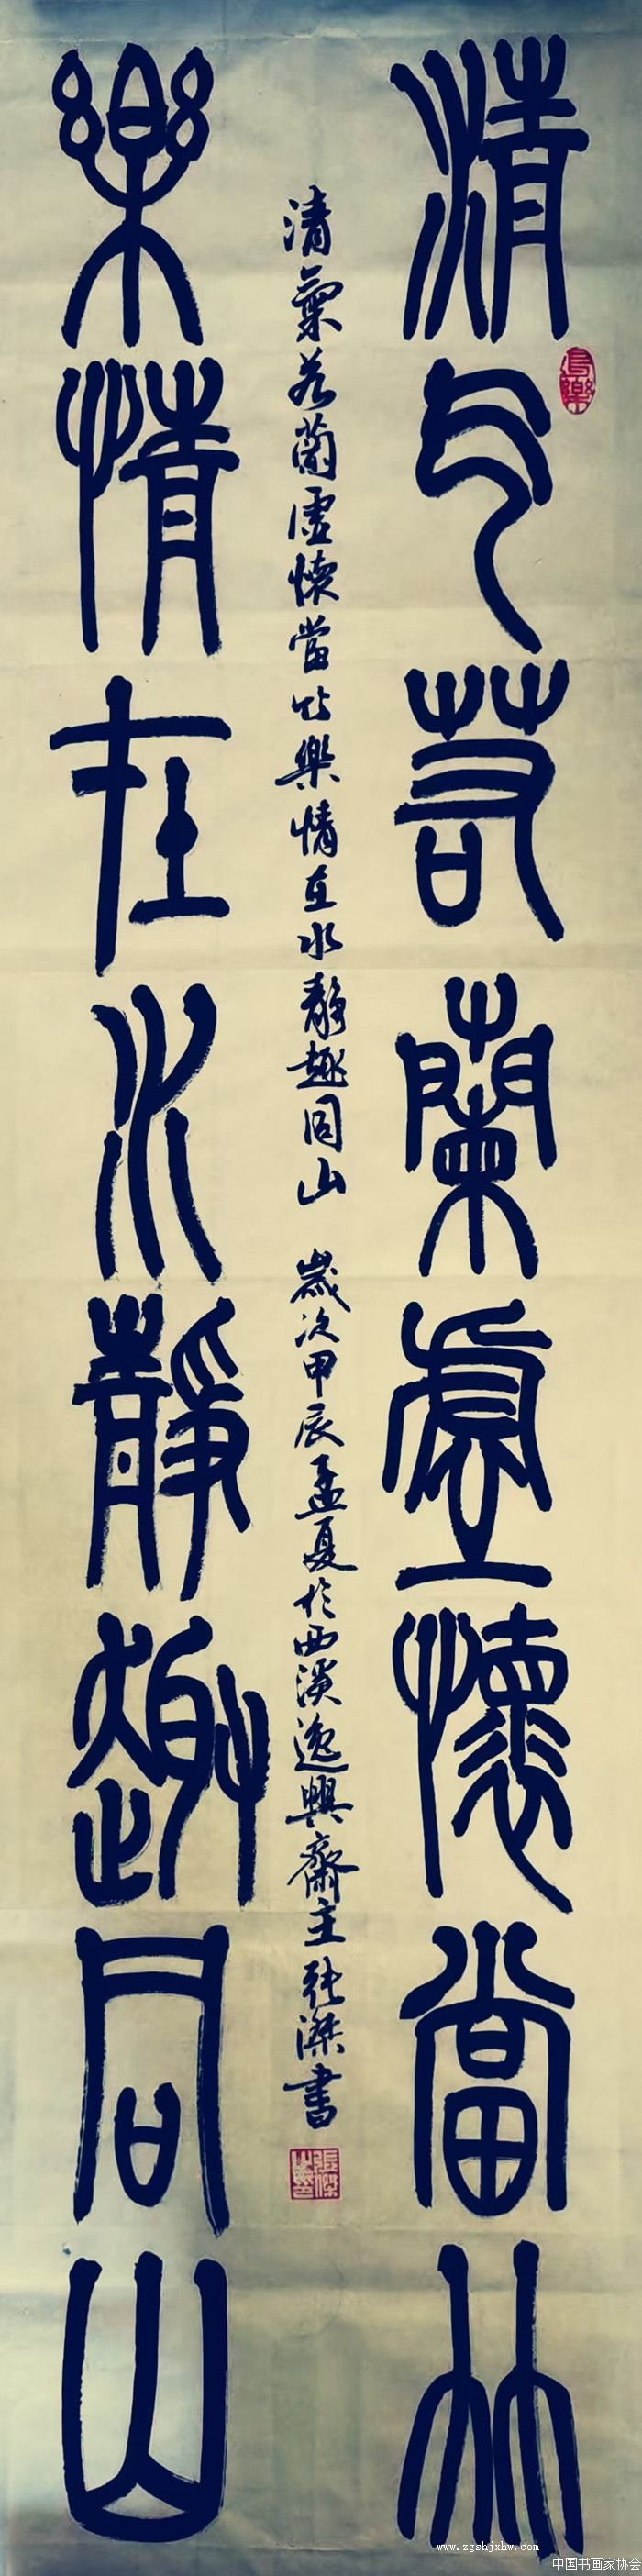 清气若蘭虚懷當竹
樂情在水靜趣同山
清氣若蘭虛懷當竹樂情在水靜趣同山 歲次甲辰孟夏於西溪逸興齋主張傑書
www.zgshjxhw.com
中国书画家协会